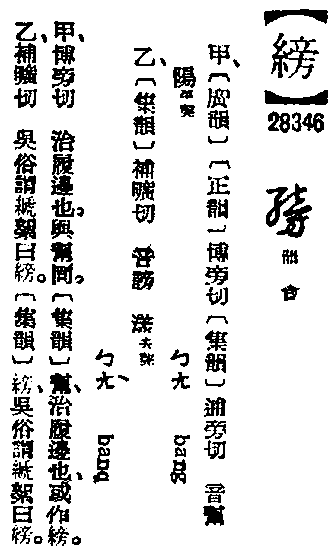 【縍】
28346
韻會
甲、〔廣韻〕〔正韻〕博旁切〔集韻〕逋旁切 音幫
陽平聲 ㄅㄤ bang
乙、〔集韻〕補曠切 音謗 漾去聲
ㄅㄤˋ bang
甲、博旁切 治履邊也。與幫同。〔集韻〕幫、治履邊也、或作縍。
乙、補曠切 吳俗謂紙絮曰縍。〔集韻〕縍、吳俗謂紙絮曰縍。